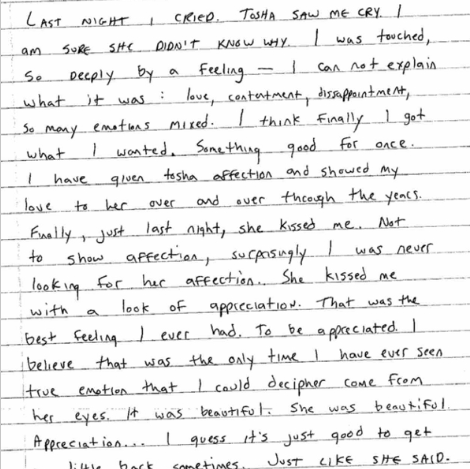 LAST NIGHT I CRIED. TOSHA SAW ME CRY. I
am SURE SHE DIDN'T KNOW WHY. I was touched,
so deeply by a feeling — I can not explain
what it was : love, contentment, dissappointment,
so many emotions mixed. I think finally I got
what I wanted. Something good for once.
I have given tosha affection and showed my
love to her over and over through the years.
Finally, just last night, she kissed me. Not
to show affection, surprisingly I was never
looking for her affection. She kissed me
with a look of appreciation. That was the
best feeling I ever had. To be appreciated. I
believe that was the only time I have ever seen
true emotion that I could decipher come from
her eyes. It was beautiful. She was beautiful.
Appreciation... I guess it's just good to get
little back sometimes. JUST LIKE SHE SAID.